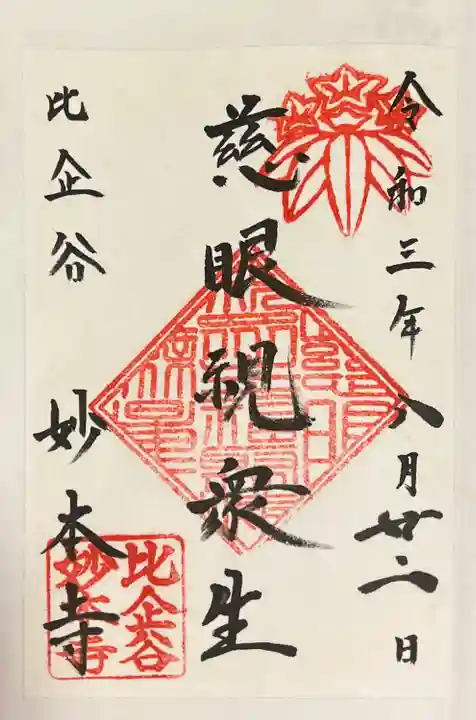 令和三年八月廿二日
慈眼視衆生
比企谷 妙本寺
比企谷
妙本寺